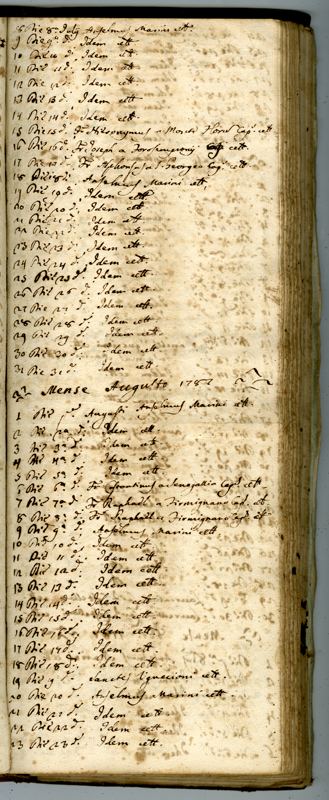 8 Die 8 July Anselmus Marini ett.
9 Die 9 d. Idem ett
10 Die 10 d. Idem ett
11 Die 11 d. Idem ett
12 Die 12 d. Idem ett
13 Die 13 d. Idem ett
14 Die 14 d. Idem ett
15 Die 15 d. Fr. Hieronymus a Monte ett
16 Die 16 d. Fr. Joseph a ett.
17 Die 17 d. Fr. a S. Georgio Cap. ett
18 Die 18 d. Anselmus Marini ett.
19 Die 19 d. Idem ett
20 Die 20 d. Idem ett
21 Die 21 d. Idem ett
22 Die 22 d. Idem ett
23 Die 23 d. Idem ett
24 Die 24 d. Idem ett.
25 Die 25 d. Idem ett.
26 Die 26 d. Idem ett.
27 Die 27 d. Idem ett.
28 Die 28 d. Idem ett.
29 Die 29 d. Idem ett.
30 Die 30 d. Idem ett.
31 Die 31 d. Idem ett.
Mense Augusto 1782
1 Die p.a Augusti Anselmus Marini ett.
2 Die 2 d. Idem ett.
3 Die 3 d. Idem ett
4 Die 4 d. Idem ett
5 Die 5 d. Idem ett
6 Die 6 d. Fr. a Senogallia Cap. ett
7 Die 7 d. Fr. Raphael a Firmignano Cap. ett
8 Die 8 d. Fr. Raphael a Firmignano Cap. ett
9 Die 9 d. Anselmus Marini ett
10 Die 10 d. Idem ett
11 Die 11 d. Idem ett
12 Die 12 d. Idem ett
13 Die 13 d. Idem ett
14 Die 14 d. Idem ett
15 Die 15 d. Idem ett
16 Die 16 d. Idem ett
17 Die 17 d. Idem ett
18 Die 18 d. Idem ett
19 Die 19 d. Sanctes ett.
20 Die 20 d. Anselmus Marini ett.
21 Die 21 d. Idem ett
22 Die 22 d. Idem ett
23 Die 23 d. Idem ett.